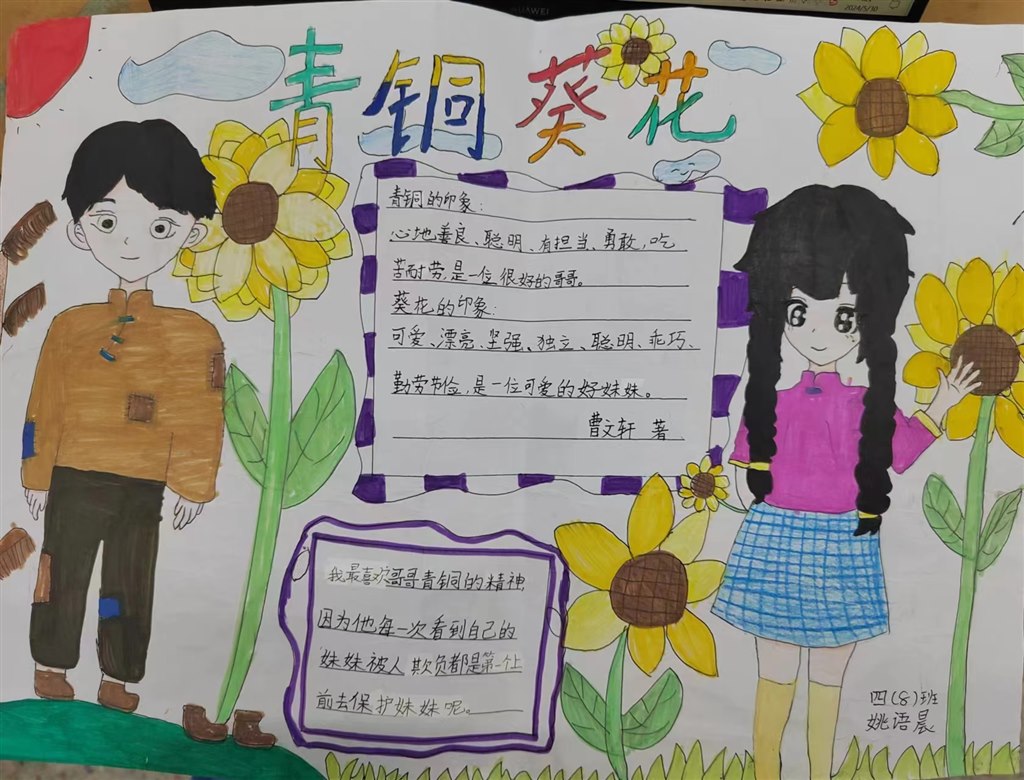 HUAWEI
2024/5/30
青铜葵花
青铜的印象：
心地善良、聪明、有担当、勇敢，吃
苦耐劳，是一位很好的哥哥。
葵花的印象：
可爱、漂亮、坚强、独立、聪明、乖巧、
勤劳节俭，是一位可爱的好妹妹。
曹文轩 著
我最喜欢哥哥青铜的精神，
因为他每一次看到自己的
妹妹被人欺负都是第一个上
前去保护妹妹呢。
四(8)班
姚语晨